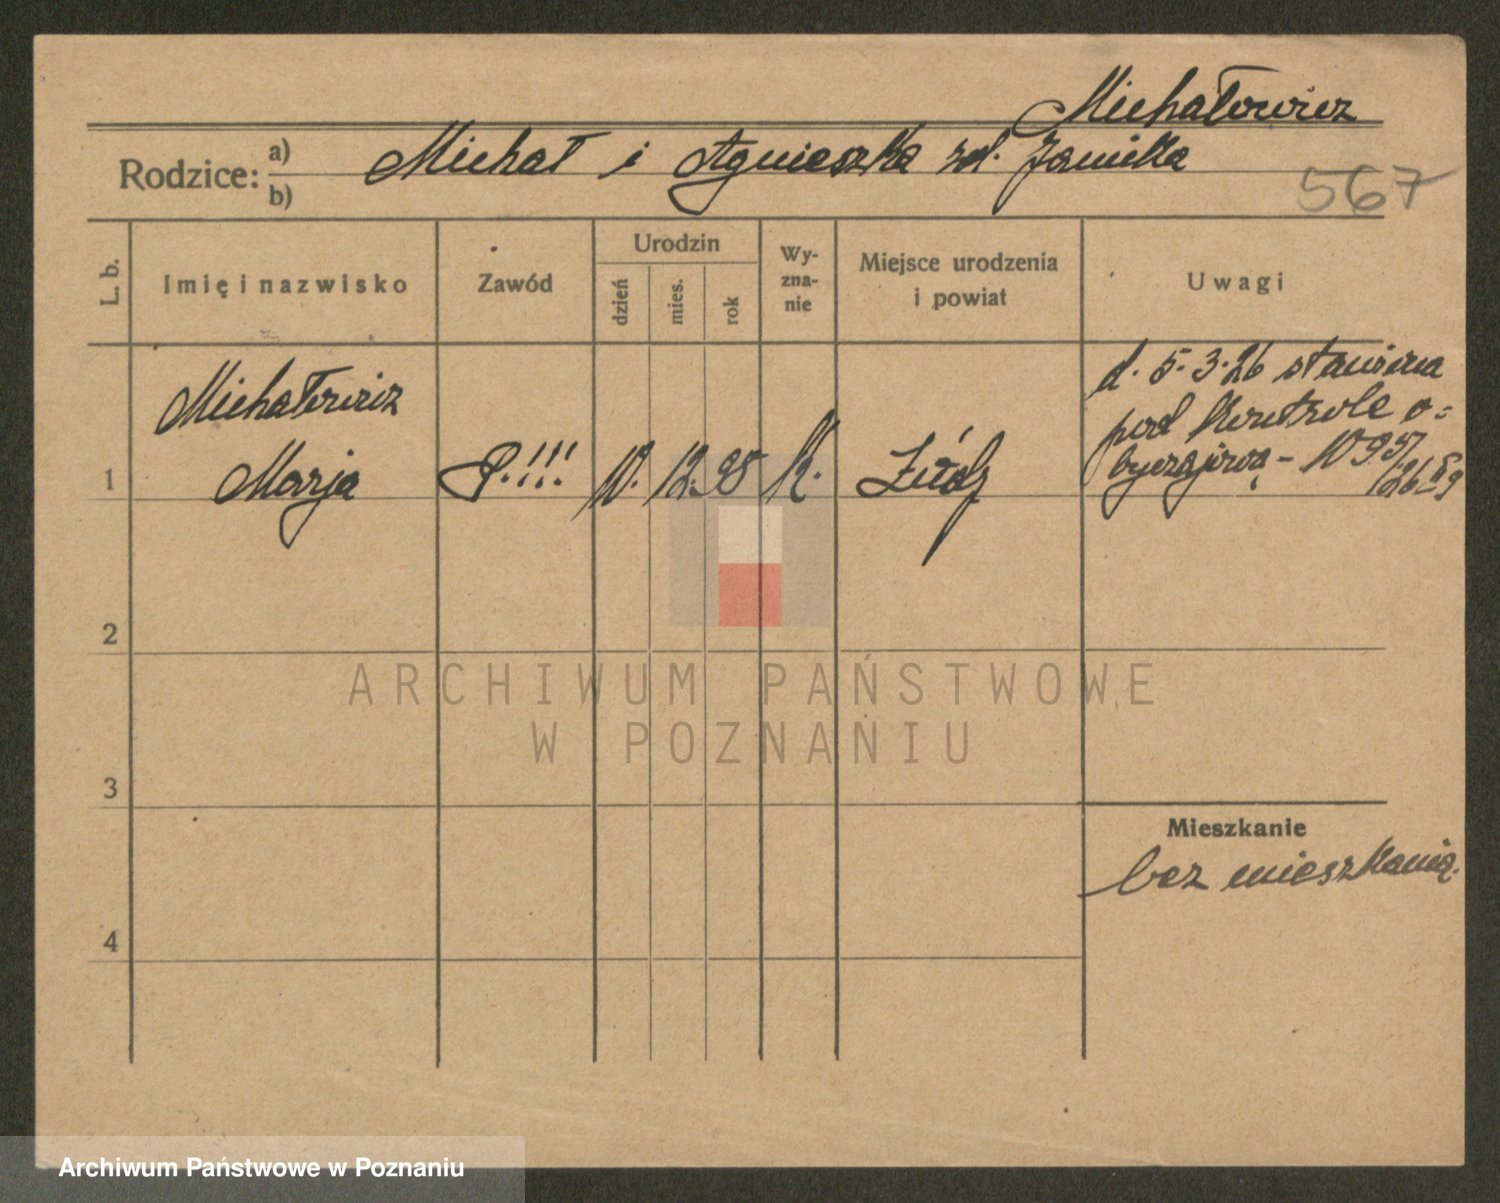 Michałowicz
Rodzice: a) b) Michał i Agnieszka zd.
567
L. b.
Imię i nazwisko
Zawód
Urodzin
dzień
mies.
rok
Wy-
zna-
nie
Miejsce urodzenia
i powiat
Uwagi
Michałowicz
1 Marja P.!!! 10. 12. 95 k. Łódź
d. 5.3.26 stawiona
pod kontrole o=
byczajową -
2
3
4
Mieszkanie
bez mieszkania.
ARCHIWUM PAŃSTWOWE
W POZNANIU
Archiwum Państwowe w Poznaniu